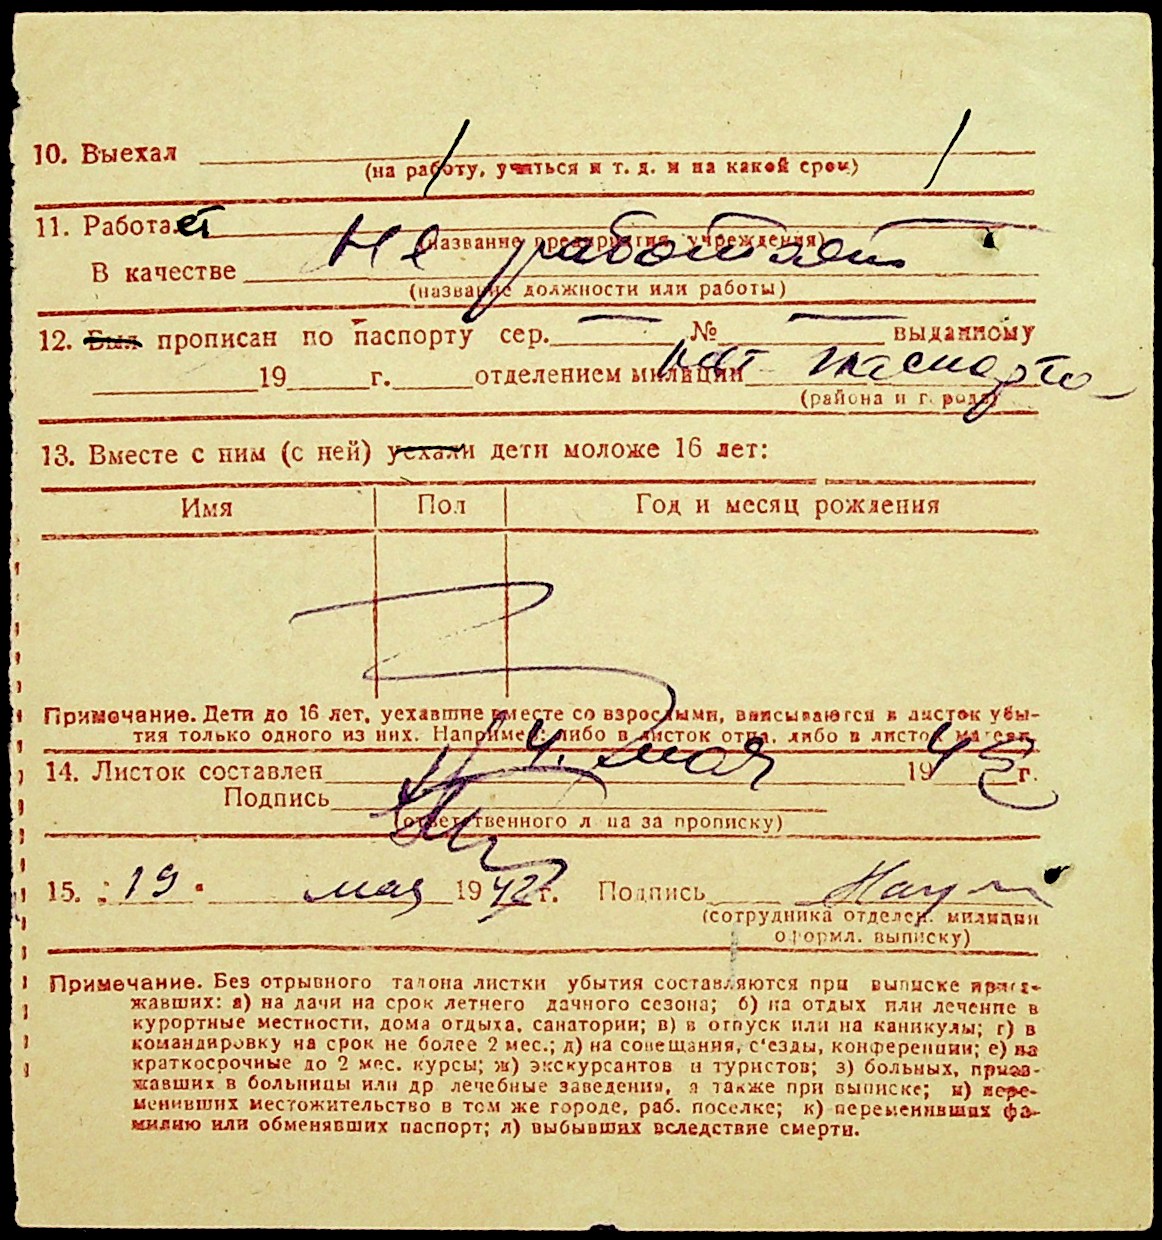 10. Выехал
(на работу, учиться и т. д. и на какой срок)
11. Работает не работает
(название предприятия, учреждения)
В качестве
(название должности или работы)
12. Был прописан по паспорту сер. — № — выданному
19 г. отделением милиции нет паспорта
(района и города)
13. Вместе с ним (с ней) уехали дети моложе 16 лет:
Имя Пол Год и месяц рождения
Примечание. Дети до 16 лет, уехавшие вместе со взрослыми, вписываются в листок убы-
тия только одного из них. Например: либо в листок отца, либо в листок матери.
14. Листок составлен 4 мая 1942 г.
Подпись
(ответственного лица за прописку)
15. 19 мая 1942 г. Подпись
(сотрудника отделен. милиции
оформл. выписку)
Примечание. Без отрывного талона листки убытия составляются при выписке приез-
жавших: а) на дачи на срок летнего дачного сезона; б) на отдых или лечение в
курортные местности, дома отдыха, санатории; в) в отпуск или на каникулы; г) в
командировку на срок не более 2 мес.; д) на совещания, с'езды, конференции; е) на
краткосрочные до 2 мес. курсы; ж) экскурсантов и туристов; з) больных, приез-
жавших в больницы или др лечебные заведения, а также при выписке; и) пере-
менивших местожительство в том же городе, раб. поселке; к) переменивших фа-
милию или обменявших паспорт; л) выбывших вследствие смерти.